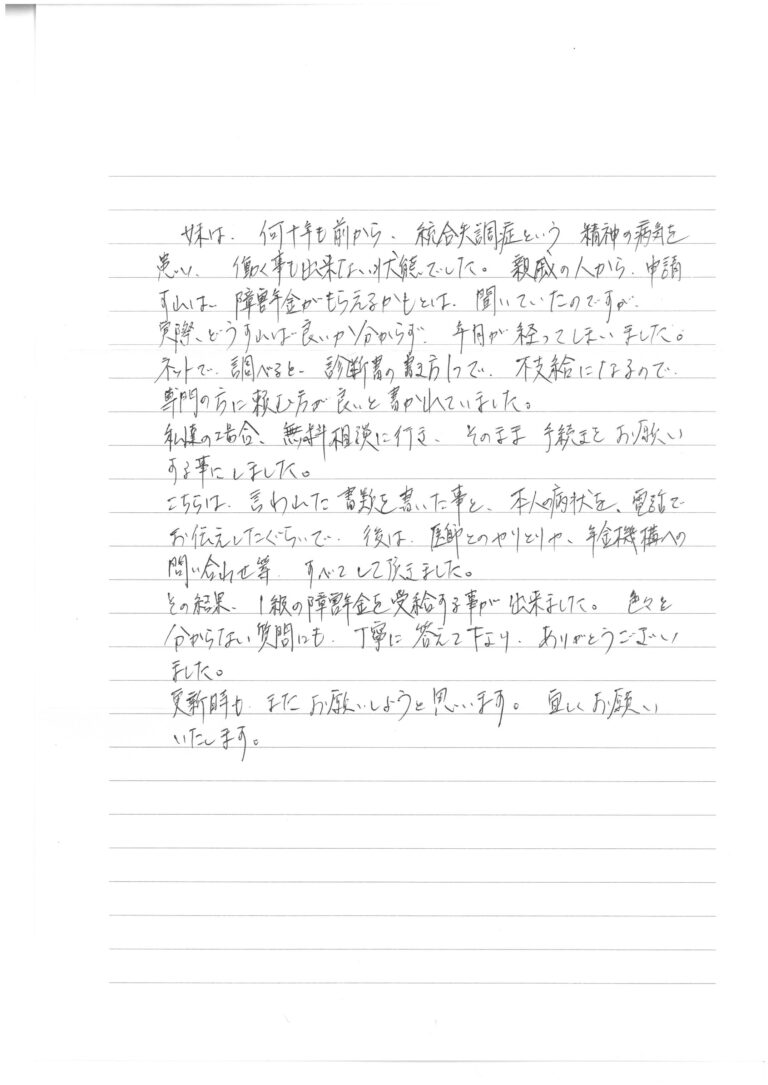 妹は、何十年も前から、統合失調症という精神の病気を
患い、働く事も出来ない状態でした。親戚の人から、申請
すれば、障害年金がもらえるかもとは、聞いていたのですが、
実際、どうすれば良いか分からず、年月が経ってしまいました。
ネットで、調べると、診断書の書き方1つで、不支給になるので、
専門の方に頼む方が良いと書かれていました。
私達の場合、無料相談に行き、そのまま手続きをお願い
する事にしました。
こちらは、言われた書類を書いた事と、本人の病状を、電話で
お伝えしたぐらいで、後は、医師とのやりとりや、年金機構への
問い合わせ等、すべてして頂きました。
その結果、1級の障害年金を受給する事が出来ました。色々と
分からない質問にも、丁寧に答えて下さり、ありがとうござい
ました。
更新時も、またお願いしようと思います。宜しくお願い
いたします。